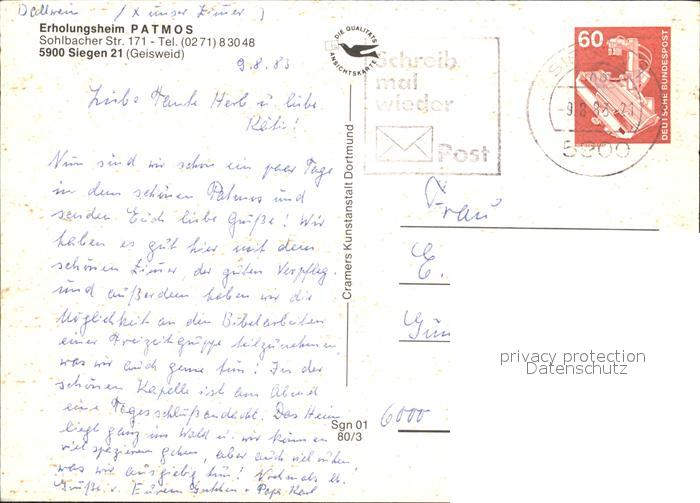 Dallwein (x unser Zimmer)
Erholungsheim PATMOS
Sohlbacher Str. 171 - Tel. (0271) 8 30 48
5900 Siegen 21 (Geisweid)
9.8.83
Liebe Tante Herb u. liebe
Käti!
Nun sind wir schon ein paar Tage
in dem schönen Patmos und
senden Euch liebe Grüße! Wir
haben es gut hier mit dem
schönen Zimmer, der guten Verpfleg.
und außerdem haben wir die
Möglichkeit an den Bibelarbeiten
einer Freizeitgruppe teilzunehmen,
was wir auch gerne tun! In der
schönen Kapelle ist am Abend
eine Tagesschlußandacht. Das Heim
liegt ganz im Wald u. wir können
viel spazieren gehen, aber auch viel ruhen,
was wir ausgiebig tun! Nochmals lb.
Grüße v. Eurem + Papa Karl
DIE QUALITÄTS
ANSICHTSKARTE
Cramers Kunstanstalt Dortmund
Sgn 01
80/3
Schreib
mal
wieder
Post
-9.8.83-21
5900
60
DEUTSCHE BUNDESPOST
Frau
E.
6000
privacy protection
Datenschutz